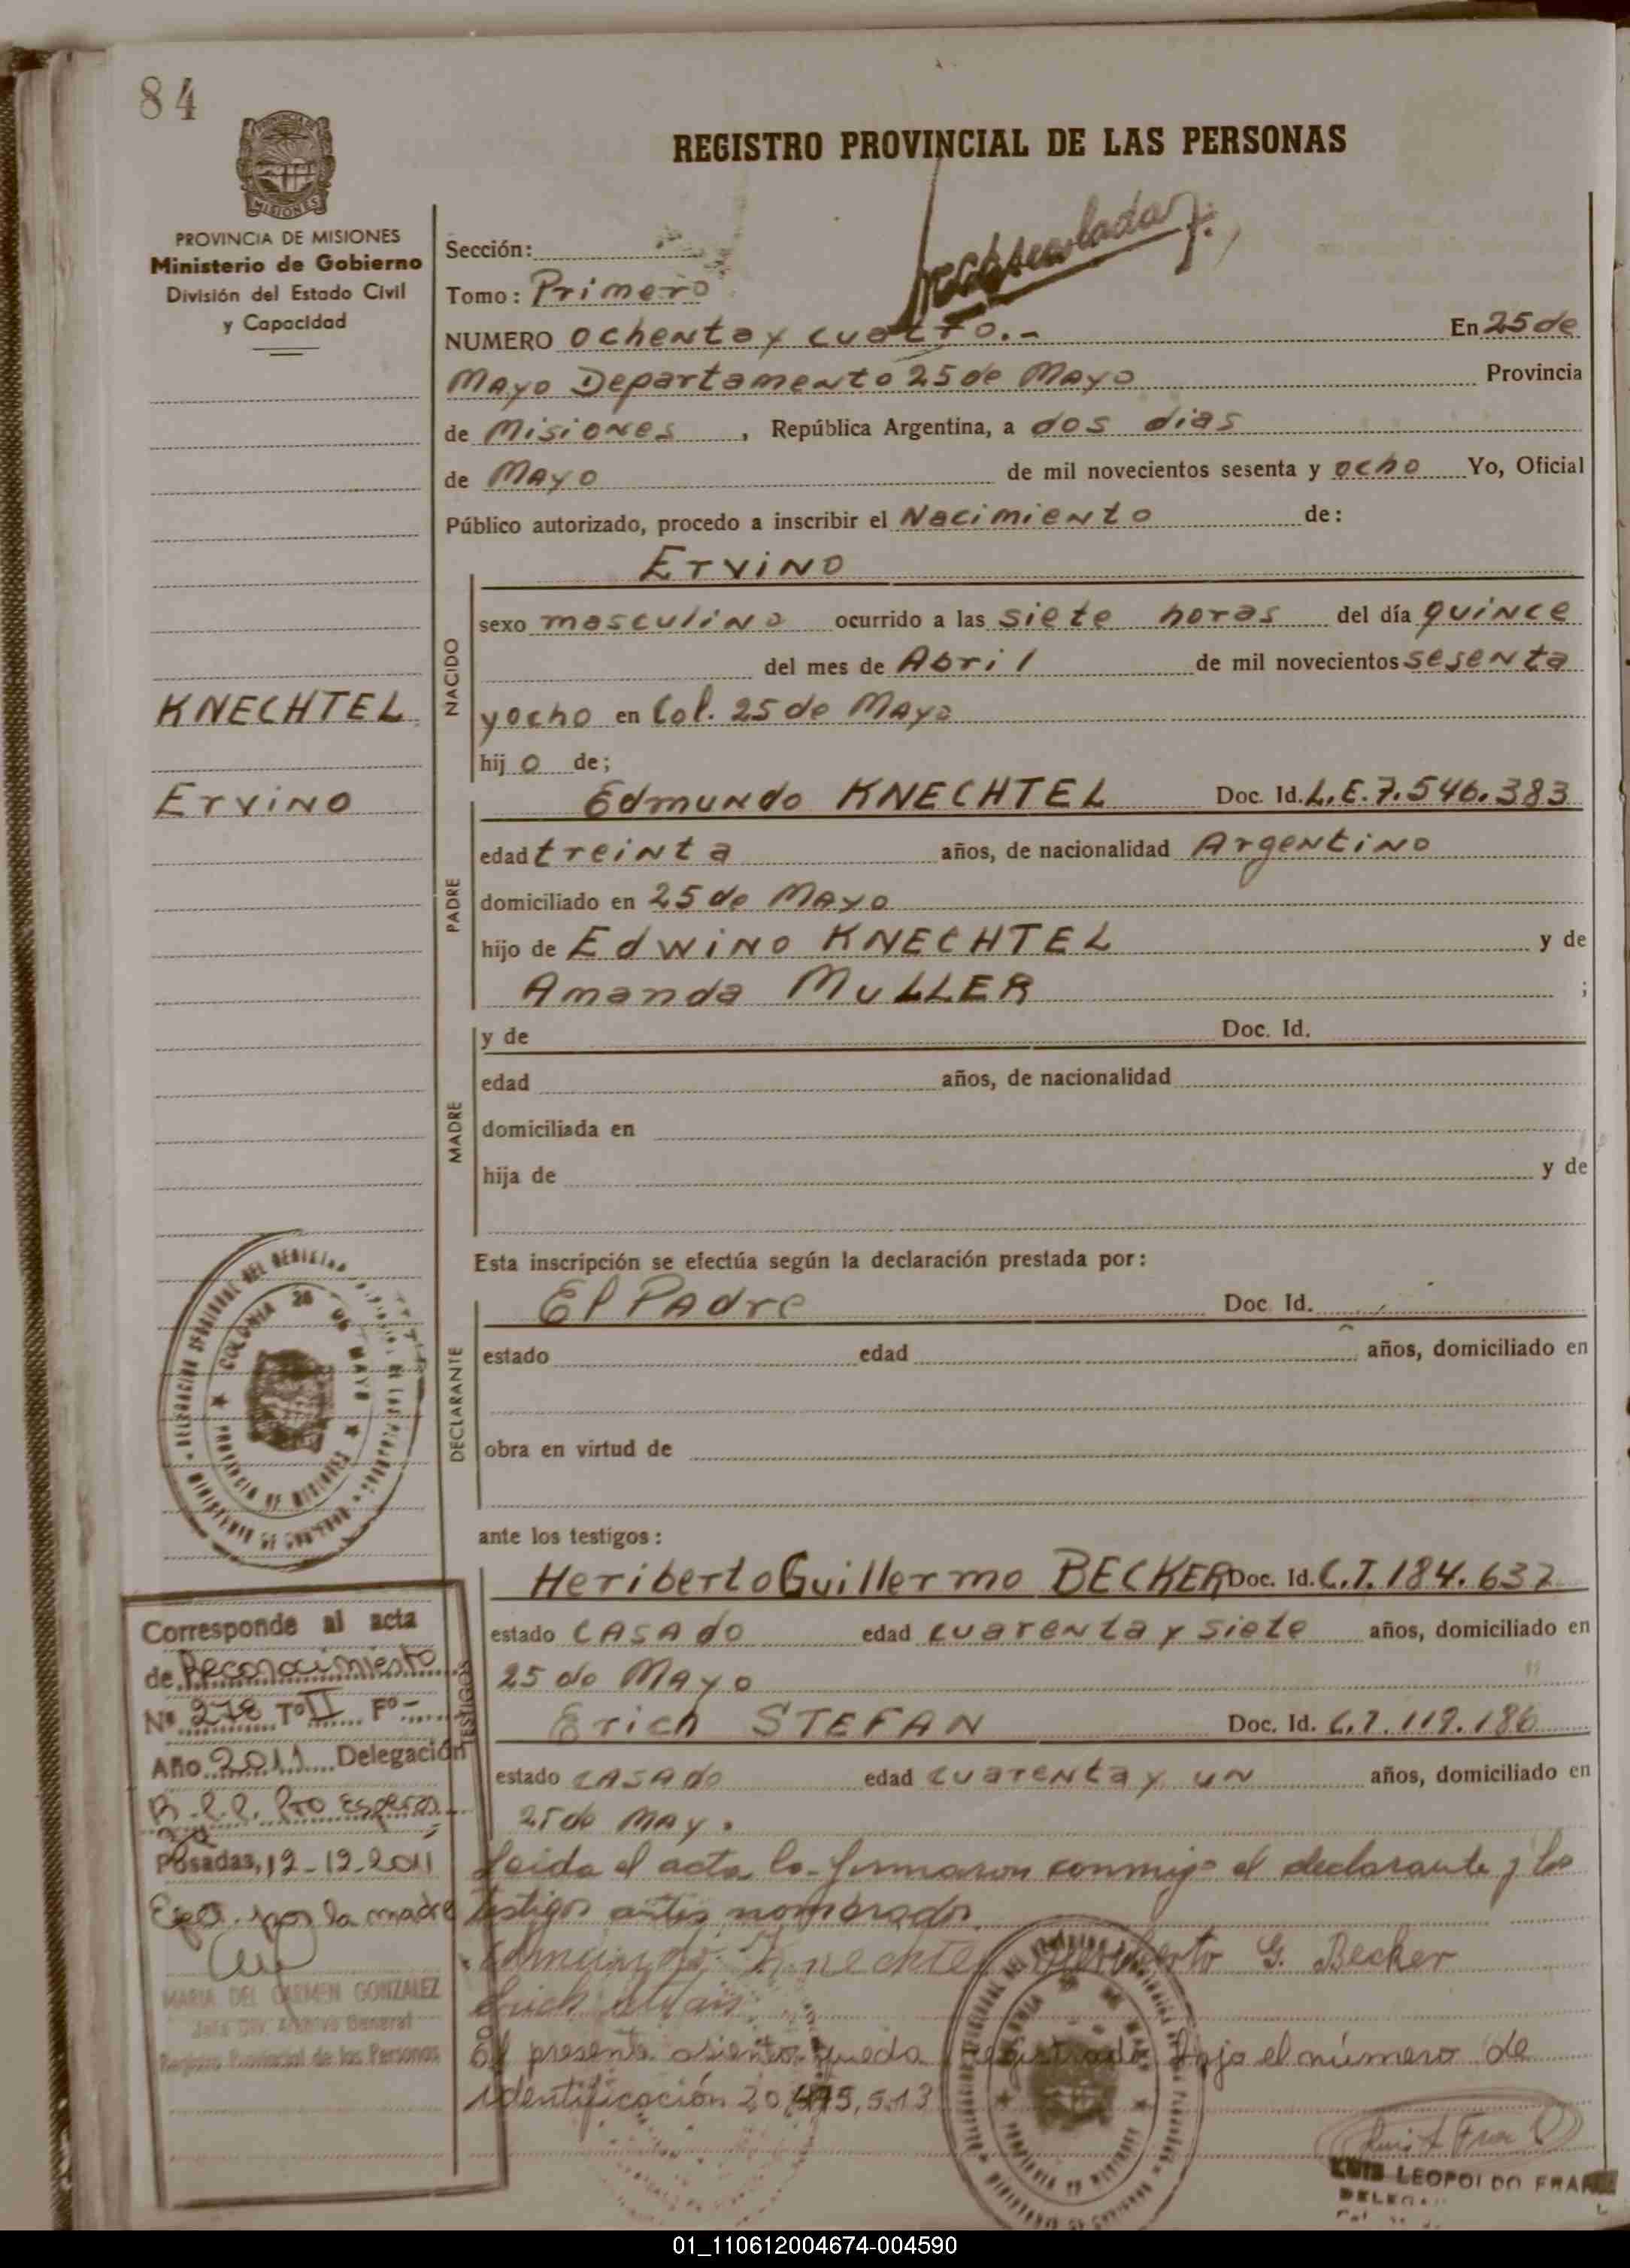 84
REGISTRO PROVINCIAL DE LAS PERSONAS
PROVINCIA DE MISIONES
Ministerio de Gobierno
División del Estado Civil
y Capacidad
Sección:
Tomo: Primero
NUMERO ochenta y cuatro.- En 25 de
Mayo Departamento 25 de Mayo Provincia
de Misiones, República Argentina, a dos dias
de Mayo de mil novecientos sesenta y ocho Yo, Oficial
Público autorizado, procedo a inscribir el Nacimiento de:
Ervino
NACIDO
sexo masculino ocurrido a las siete horas del día quince
del mes de Abril de mil novecientos sesenta
y ocho en Col. 25 de Mayo
hijo de;
KNECHTEL
Ervino
PADRE
Edmundo KNECHTEL Doc. Id. L.E.7.546.383
edad treinta años, de nacionalidad Argentino
domiciliado en 25 de Mayo
hijo de Edwino KNECHTEL y de
Amanda MULLER ;
MADRE
y de Doc. Id.
edad años, de nacionalidad
domiciliada en
hija de y de
Esta inscripción se efectúa según la declaración prestada por:
DECLARANTE
El Padre Doc. Id.
estado edad años, domiciliado en
obra en virtud de
COLONIA 25 DE MAYO
PROVINCIA DE MISIONES
ante los testigos:
TESTIGOS
Heriberto Guillermo BECKER Doc. Id. C.I. 184.637
estado CASADO edad cuarenta y siete años, domiciliado en
25 de Mayo
Erich STEFAN Doc. Id. C.I. 119.186
estado CASADO edad cuarenta y un años, domiciliado en
25 de May.
Leida el acta la firmaron conmigo el declarante y los
testigos antes nombrados.
Edmundo Knechtel Heriberto G. Becker
Erich Stefan
El presente asiento queda registrado bajo el número de
identificación 20,475,513
Corresponde al acta
de Reconocimiento
Nº 278 Tº II Fº -
Año 2011 Delegación
Posadas, 12-12-2011
por la madre
MARIA DEL CARMEN GONZALEZ
Jefa Div. Archivo General
Registro Provincial de las Personas
LUIS LEOPOLDO
01_110612004674-004590